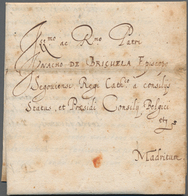 Illmo ac Rmo Patri
IGNACIO DE BRIZUELA Episcopo
Segoviensi Regi Cathco a consilijs
Status, et Præsidi Consilij Belgici
etc
Madritum